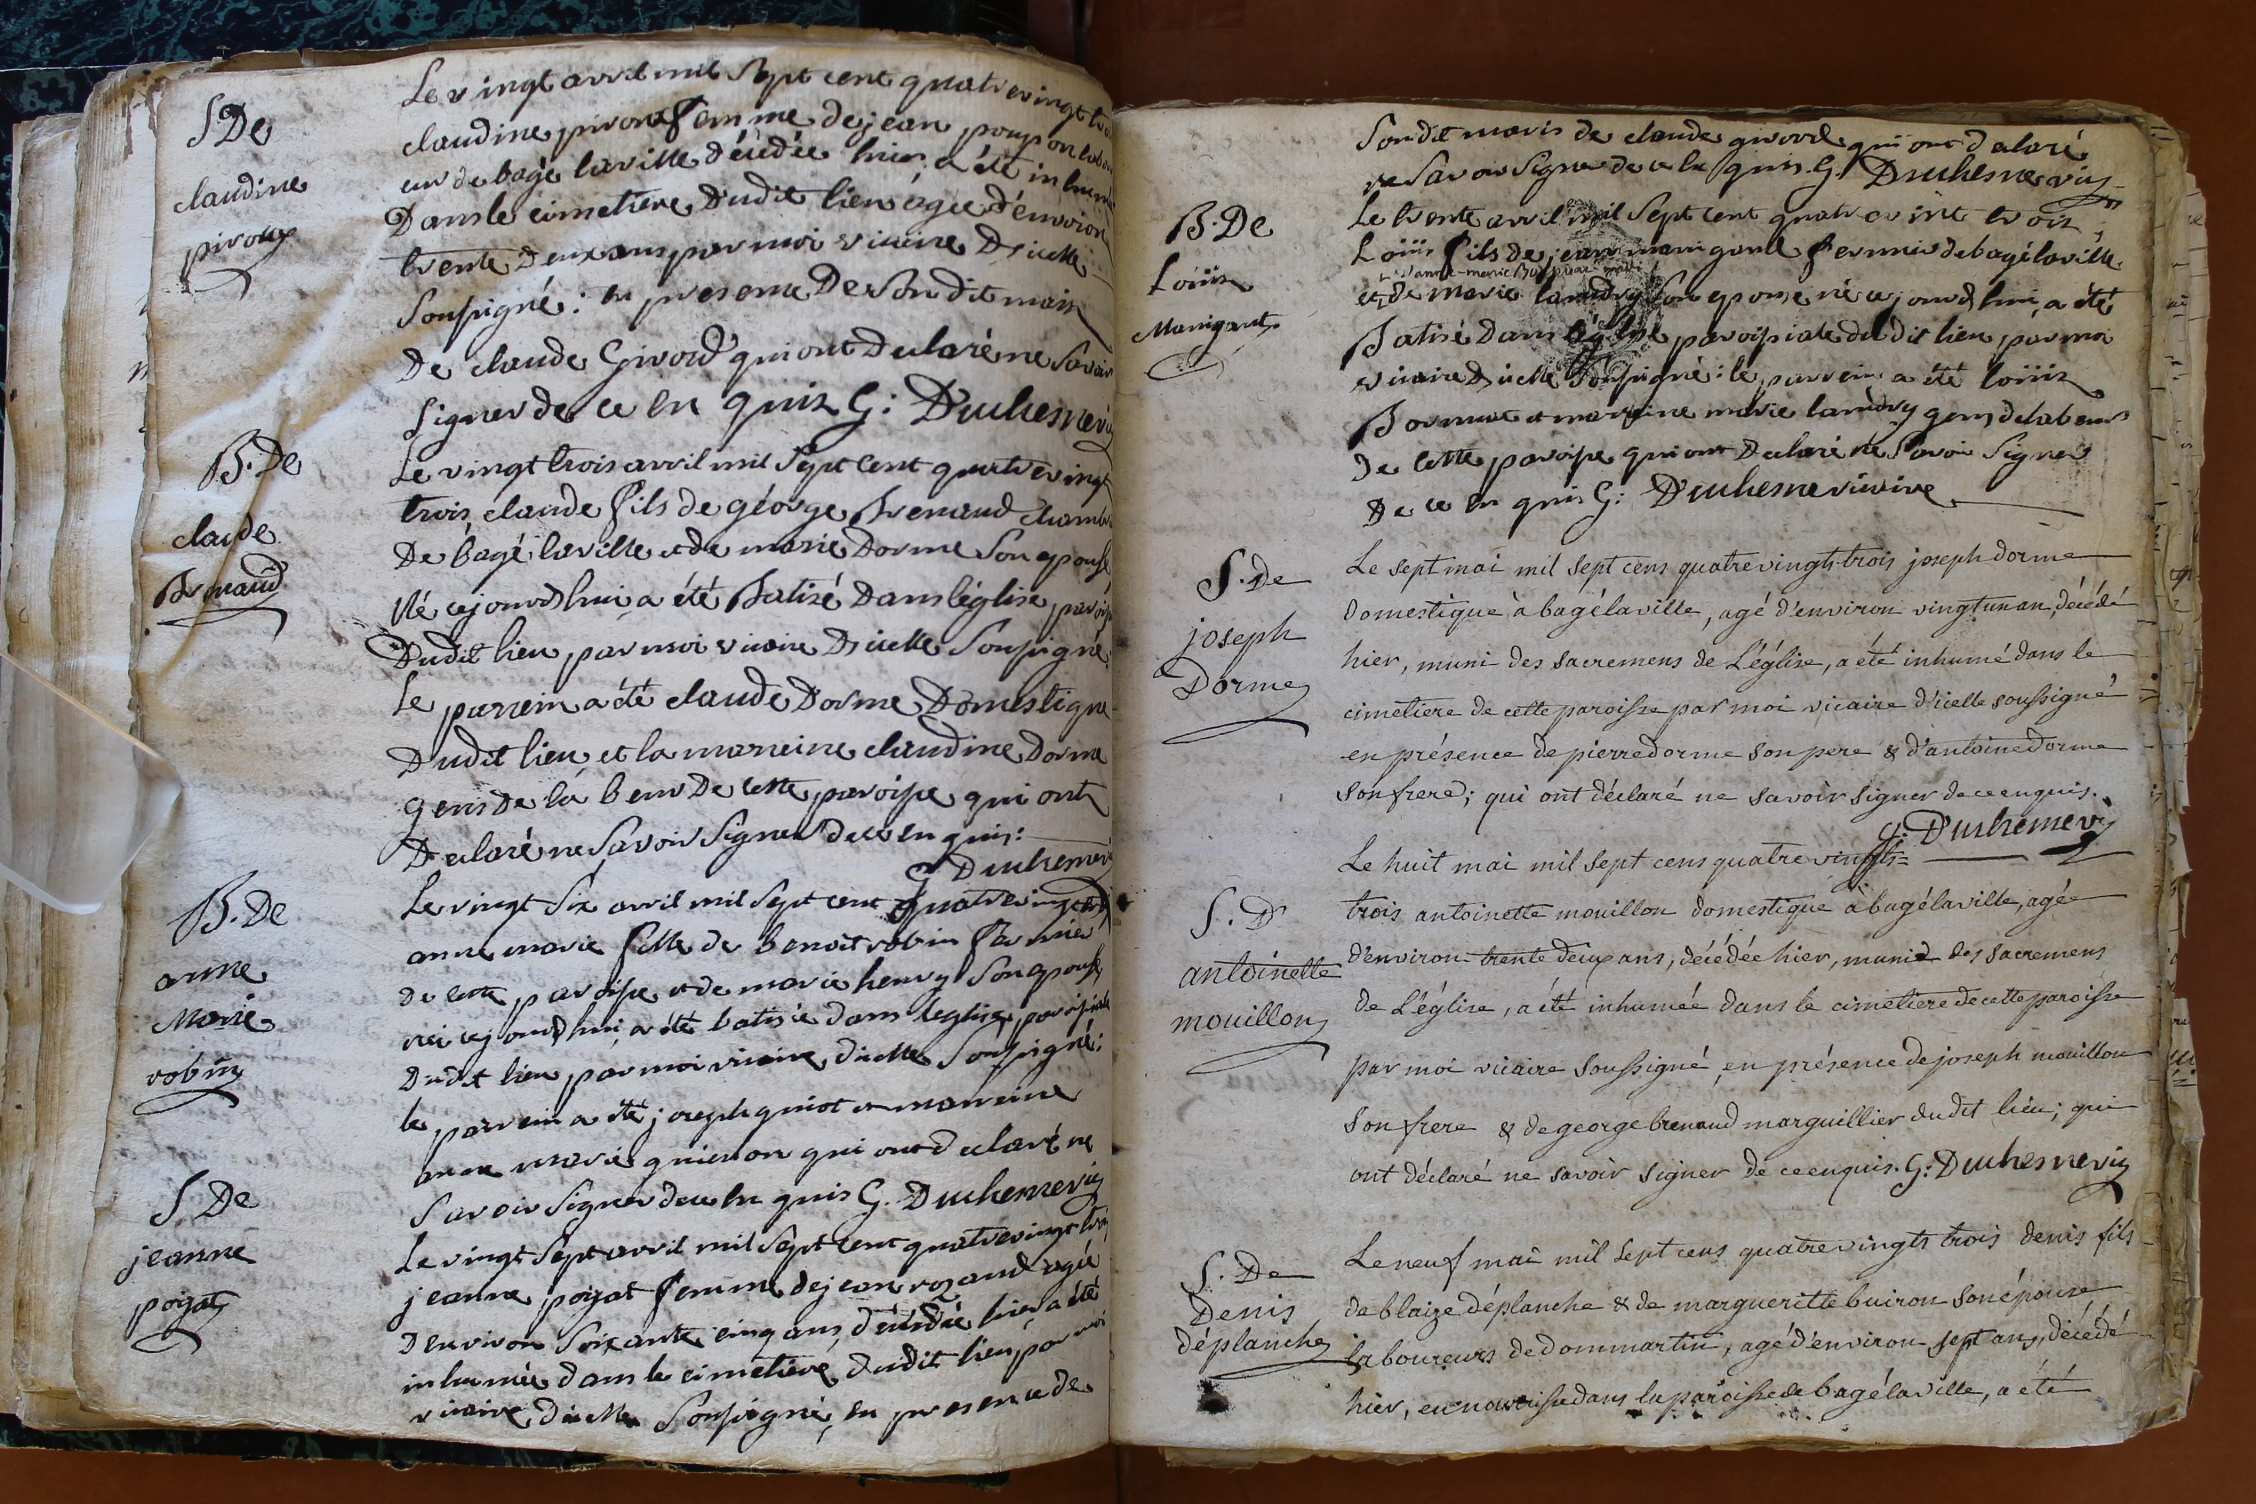 S De
claudine
piroux
Le vingt avril mil Sept cent quatrevingt
claudine piroux femme de jean poupon
eur de bagé laville décédée hier a été inhumé
Dans le cimetiere Dudit lieu agée d'environ
trente Deux ans par moi vicaire D'icelle
Soussigné: en presence De son dit mari
De claude Givord qui ont Declaré ne Savoir
Signer de ce en quis G: Duchesne
B. De
claude
Brenaud
Le vingt trois avril mil Sept cent quatrevingt
trois claude fils de géorge Brenaud
De bagé laville et de marie Dorme Son epouse
Né cejourd'hui a été Batisé Dans léglise
Dudit lieu par moi vicaire D'icelle Soussigné:
Le parrein a été claude Dorme Domestique
Dudit lieu et la marreine claudine Dorme
gens De la beur De cette paroisse qui ont
Declaré ne Savoir Signer de ce en quis:
G Duchesne
B. De
anne
Marie
robin
Le vingt Six avril mil Sept cent quatrevingt
anne marie fille de benoit robin fermier
De cette paroisse et de marie henry Son epouse
née cejourd'hui a été batisée dans leglise paroissiale
Dudit lieu par moi vicaire d'icelle Soussigné:
le parrein a été joseph guiot et marreine
anne marie qui ont declaré ne
Savoir Signer de ce en quis G. Duchesne vic
S De
jeanne
poizat
Le vingt Sept avril mil Sept cent quatrevingt
jeanne poizat femme de jean agée
Denviron Soixante cinq ans décédée hier a été
inhumée dans le cimetiere dudit lieu par moi
vicaire dicelle Soussigné, en presence de
Son dit maris de claude givord qui ont declaré
ne Savoir Signer de ce en quis. G. Duchesne vic
B. De
Loüis
Manigant
Le trente avril mil Sept cent quatre vint trois
Loüis fils de jean manigand fermier de bagé laville
et de marie landry Son epouse né cejourd'hui, a été
Batisé Dans léglise paroissiale dudit lieu par moi
vicaire D'icelle Soussigné: le parrein a été loüis
et marreine marie landry gens de labeur
De cette paroisse qui ont Declaré ne Savoir Signer
De ce en quis G: Duchesne vicaire
S. De
joseph
Dorme
Le sept mai mil sept cens quatre vingts-trois joseph dorme
domestique à bagélaville, agé d'environ vingt un an, décédé
hier, muni des sacremens de L'église, a été inhumé dans le
cimetiere de cette paroisse par moi vicaire d'icelle soussigné
en présence de pierre dorme son pere & d'antoine dorme
son frere; qui ont déclaré ne savoir signer de ce enquis.
G. Duchesne vic
S. D
antoinette
mouillon
Le huit mai mil sept cens quatre vingts=
trois antoinette mouillon domestique à bagélaville, agée
d'environ trente deux ans, décédée hier, munie des sacremens
de L'église, a été inhumée dans le cimetiere de cette paroisse
par moi vicaire soussigné, en présence de joseph mouillon
son frere & de george brenaud marguillier dudit lieu; qui
ont déclaré ne savoir signer de ce enquis. G: Duchesne vic
S. De
Denis
déplanche
Le neuf mai mil sept cens quatre vingts trois denis fils
de blaize déplanche & de margueritte buiron son épouse
laboureurs de dommartin, agé d'environ sept ans, décédé
hier, en nourrisse dans la paroisse de bagélaville, a été